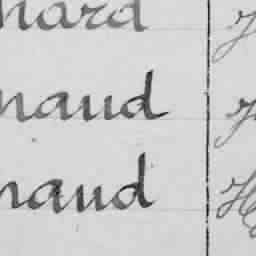 hard
naud
naud